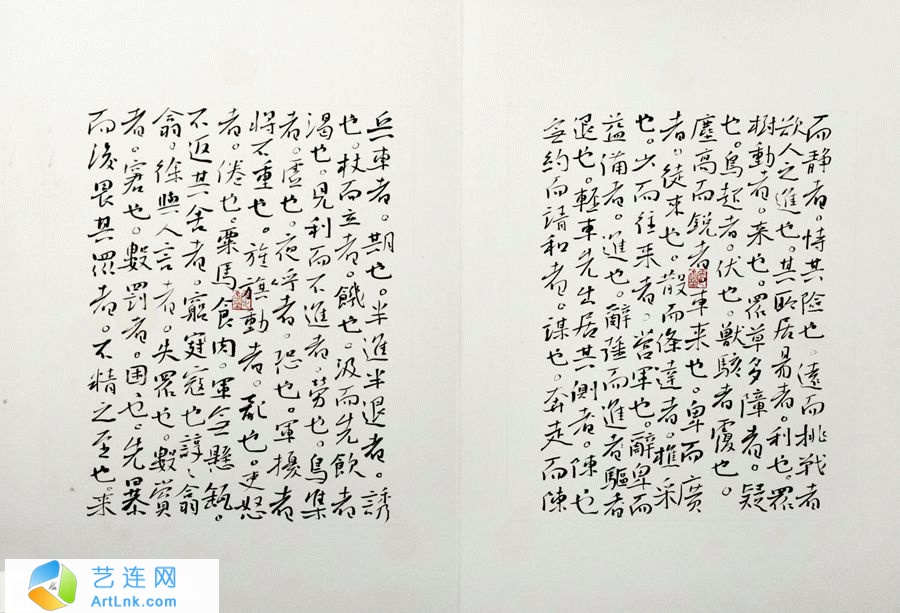 而静者。恃其险也。遠而挑戰者
欲人之進也。其所居易者。利也。眾
樹動者。来也。眾草多障者。疑
也。鳥起者。伏也。獸駭者覆也。
塵高而銳者車来也。卑而廣
者。徒来也。散而條達者。樵采
也。少而往来者。營軍也。辭卑而
益備者。進也。辭强而進者驅者
退也。輕車先出居其側者。陳也
無約而請和者。謀也。奔走而陳
兵車者。期也。半進半退者。誘
也。杖而立者。饑也。汲而先飲者
渴也。見利而不進者。勞也。鳥集
者。虛也。夜呼者。恐也。軍擾者
將不重也。旌旗動者。亂也。吏怒
者。倦也。粟馬食肉。軍無懸缻。
不返其舍者。窮寇也諄々翕
翕。徐與人言者。失眾也。數賞
者。窘也。數罰者。困也。先暴
而後畏其眾者。不精之至也。来
艺连网
ArtLnk.com